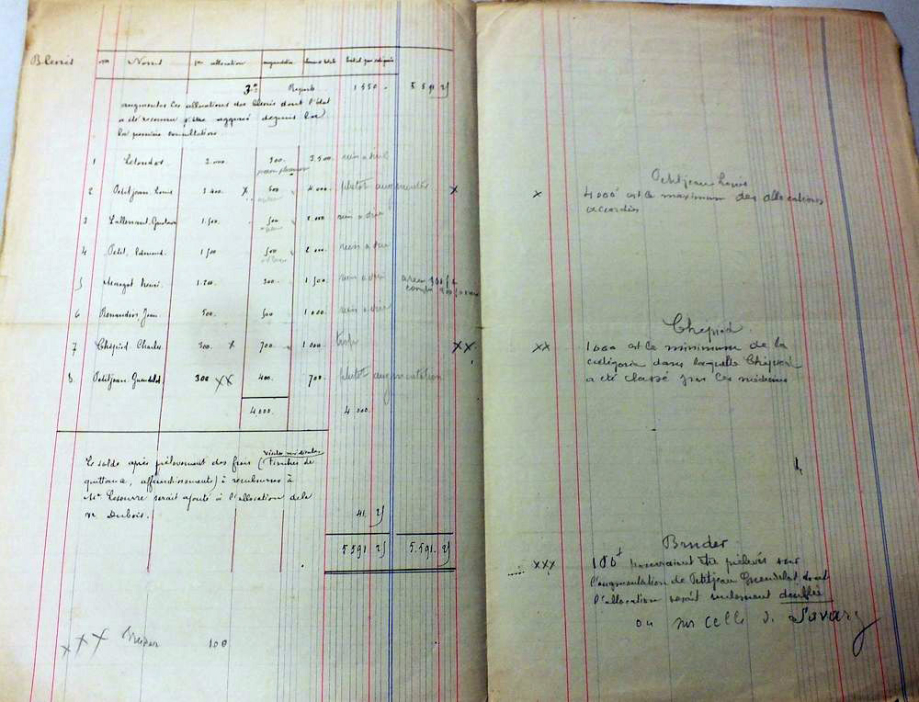 Blessés Nos Noms 1re allocation augmentation
3° Reports 1.550 - 5.591 25
augmenter les allocations des blessés dont l'état
a été reconnu s'être aggravé depuis la
la première consultation
1 2.000. 500. 2.500. rien à dire
2 Petitjean Louis 3.400 x 600 4.000. plutôt augmenter x
3 Lallemant Gustave 1.500. 500 2.000 rien à dire
4 Petit, Edmond 1.500 500 2.000. rien à dire
5 Henri. 1.200. 300. 1.500 rien à dire
6 Jean 500. 500 1.000 rien à dire
7 Chépied Charles 300. x 700 1.000 xx
8 Petitjean Guendelet 300 xx 400. 700. plutôt augmentation
4.000. 4.000.
Le solde après prélèvement des frais (
timbres de
quittance, affranchissements) à rembourser à
Mr serait ajouté à l'allocation de la
ve Dubois. 41. 25
5.591 25 5.591. 25
xxx Bruder 100
Petitjean Louis
x 4000f est le maximum des allocations
accordées
Chépied
xx 1000 est le minimum de la
catégorie dans laquelle Chépied
a été classé par les médecins
Bruder
xxx 100f pourraient être prélevés sur
l'augmentation de Petitjean Guendelet dont
l'allocation serait seulement doublée
ou sur celle de Savary